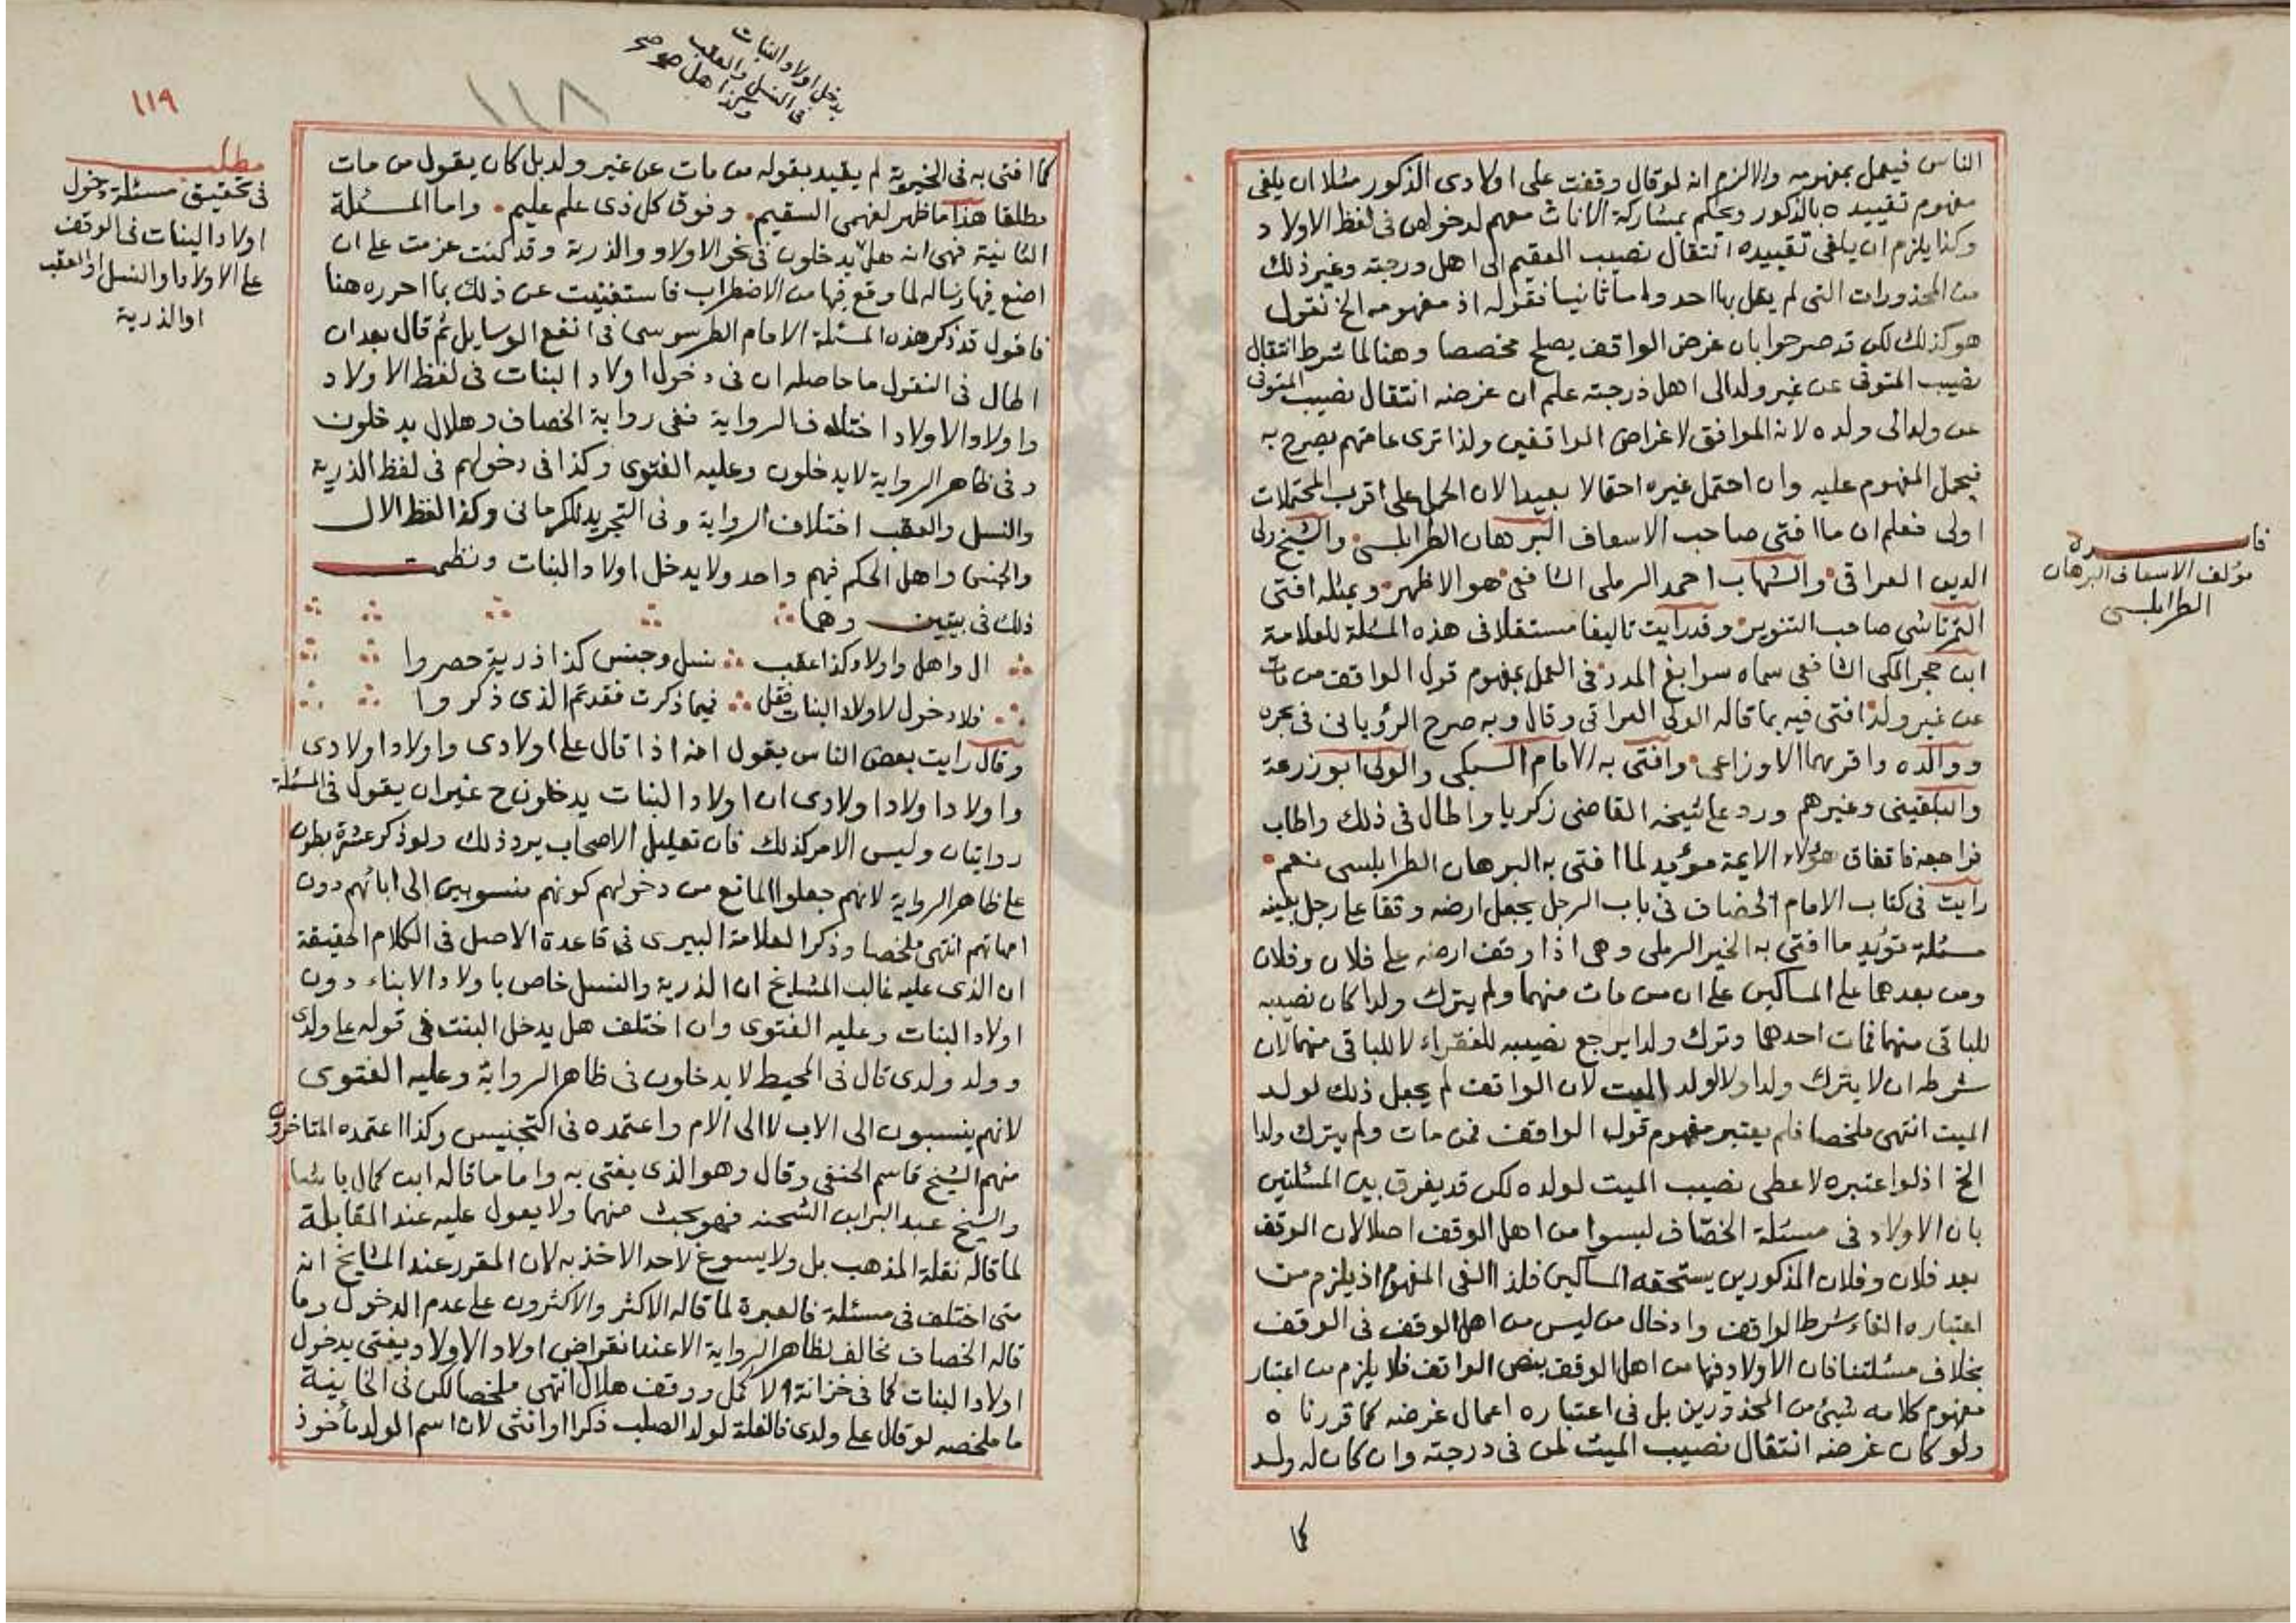 الناس فيعمل بمفهومه والا لزم انه لو قال وقفت على اولادى الذكور مثلا ان يلغى
مفهوم تقييده بالذكور ويحكم بمشاركة الاناث معهم لدخولهن فى لفظ الاولاد
وكذا يلزم ان يلغى تقييده انتقال نصيب العقيم الى اهل درجته وغير ذلك
من المحذورات التى لم يقل بها احد واما ثانيا فقوله اذ مفهومه الخ نقول
هو كذلك لكن قد صرحوا بان غرض الواقف يصلح مخصصا وهنا لما شرط انتقال
نصيب المتوفى عن غير ولد الى اهل درجته علم ان غرضه انتقال نصيب المتوفى
عن ولد الى ولده لانه الموافق لاغراض الواقفين ولذا ترى عامتهم يصرح به
فيحمل المفهوم عليه وان احتمل غيره احتمالا بعيدا لان الحمل على اقرب المحتملات
اولى فعلم ان ما افتى صاحب الاسعاف البرهان الطرابلسى والشيخ ولى
الدين العراقى والشهاب احمد الرملى الشافعى هو الاظهر وبمثله افتى
التمرتاشى صاحب التنوير وقد رايت تاليفا مستقلا فى هذه المسئلة للعلامة
ابن حجر المكى الشافعى سماه سوابغ المدد فى العمل بمفهوم قول الواقف من مات
عن غير ولد افتى فيه بما قاله الولى العراقى وقال وبه صرح الرؤيانى فى بحره
ووالده واقرهما الاوزاعى وافتى به الامام السبكى والولى ابو زرعة
والبلقينى وغيرهم ورد على شيخه القاضى زكريا واطال فى ذلك واطاب
فراجعه فاتفاق هؤلاء الايمة مؤيد لما افتى به البرهان الطرابلسى نعم
رايت فى كتاب الامام الخصاف فى باب الرجل يجعل ارضه وقفا على رجل بعينه
مسئلة تؤيد ما افتى به الخير الرملى وهى اذا وقف ارضه على فلان وفلان
ومن بعدهما على المساكين على ان من مات منهما ولم يترك ولدا كان نصيبه
للباقى منهما فمات احدهما وترك ولدا يرجع نصيبه للفقراء لا للباقى منهما لان
شرطه ان لا يترك ولدا ولا لولد الميت لان الواقف لم يجعل ذلك لولد
الميت انتهى ملخصا فلم يعتبر مفهوم قول الواقف فمن مات ولم يترك ولدا
الخ اذ لو اعتبره لاعطى نصيب الميت لولده لكن قد يفرق بين المسئلتين
بان الاولاد فى مسئلة الخصّاف ليسوا من اهل الوقف اصلا لان الوقف
بعد فلان وفلان المذكورين يستحقه المساكين فلذا الغى المفهوم اذ يلزم من
اعتباره الغاء شرط الواقف وادخال من ليس من اهل الوقف فى الوقف
بخلاف مسئلتنا فان الاولاد فيها من اهل الوقف بنص الواقف فلا يلزم من اعتبار
مفهوم كلامه شيئ من المحذورين بل فى اعتباره اعمال غرضه كما قررناه
ولو كان غرضه انتقال نصيب الميت لمن فى درجته وان كان له ولد
كما
فائدة
مؤلف الاسعاف البرهان
الطرابلسى
يدخل اولاد البنات
فى النسل والعقب
١١٨
١١٩
كما افتى به فى الخيرية لم يقيد بقوله من مات عن غير ولد بل كان يقول من مات
مطلقا هذا ما ظهر لفهمى السقيم وفوق كل ذى علم عليم واما المسئلة
الثانية فهى انه هل يدخلون فى نحو الاولاد والذرية وقد كنت عزمت على ان
اضع فيها رساله لما وقع فيها من الاضطراب فاستغنيت عن ذلك بما احرره هنا
فاقول قد ذكر هذه المسئلة الامام الطرسوسى فى انفع الوسايل ثم قال بعد ان
اطال فى النقول ما حاصله ان فى دخول اولاد البنات فى لفظ الاولاد
واولاد الاولاد اختلاف الرواية ففى رواية الخصاف وهلال يدخلون
وفى ظاهر الرواية لا يدخلون وعليه الفتوى وكذا فى دخولهم فى لفظ الذرية
والنسل والعقب اختلاف الرواية وفى التجريد للكرمانى وكذا لفظ الال
والجنس واهل الحكم فيهم واحد ولا يدخل اولاد البنات ونظمت
ذلك فى بيتين وهما
ال واهل واولاد كذا عقب نسل وجنس كذا ذرية حصروا
فلا دخول لاولاد البنات فقل فيما ذكرت فقد تم الذى ذكروا
وقال رايت بعض الناس يقول انه اذا قال على اولادى واولاد اولادى
واولاد اولاد اولادى ان اولاد البنات يدخلون ح غير ان يقول فى المسئلة
روايتان وليس الامر كذلك فان تعليل الاصحاب يرد ذلك ولو ذكر عشرة بطون
على ظاهر الرواية لانهم جعلوا المانع من دخولهم كونهم منسوبين الى ابائهم دون
امهاتهم انتهى ملخصا وذكر العلامة البيرى فى قاعدة الاصل فى الكلام الحقيقة
ان الذى عليه غالب المشايخ ان الذرية والنسل خاص باولاد الابناء دون
اولاد البنات وعليه الفتوى وان اختلف هل يدخل البنت فى قوله على ولدى
وولد ولدى قال فى المحيط لا يدخلون فى ظاهر الرواية وعليه الفتوى
لانهم ينسبون الى الاب لا الى الام واعتمده فى التجنيس وكذا اعتمده المتاخرون
منهم الشيخ قاسم الحنفى وقال وهو الذى يفتى به واما ما قاله ابن كمال باشا
والشيخ عبد البر ابن الشحنه فهو بحث منهما ولا يعول عليه عند المقابلة
لما قاله نقلة المذهب بل ولا يسوغ لاحد الاخذ به لان المقرر عند المشايخ انه
متى اختلف فى مسئلة فالعبرة لما قاله الاكثر والاكثرون على عدم الدخول وما
قاله الخصاف مخالف لظاهر الرواية الا عند انقراض اولاد الاولاد يفتى بدخول
اولاد البنات كما فى خزانة الاكمل ووقف هلال انتهى ملخصا لكن فى الخانية
ما ملخصه لو قال على ولدى فالغلة لولد الصلب ذكرا او انثى لان اسم الولد مأخوذ
مطلب
فى تحقيق مسئلة دخول
اولاد البنات فى الوقف
على الاولاد او النسل او العقب
او الذرية